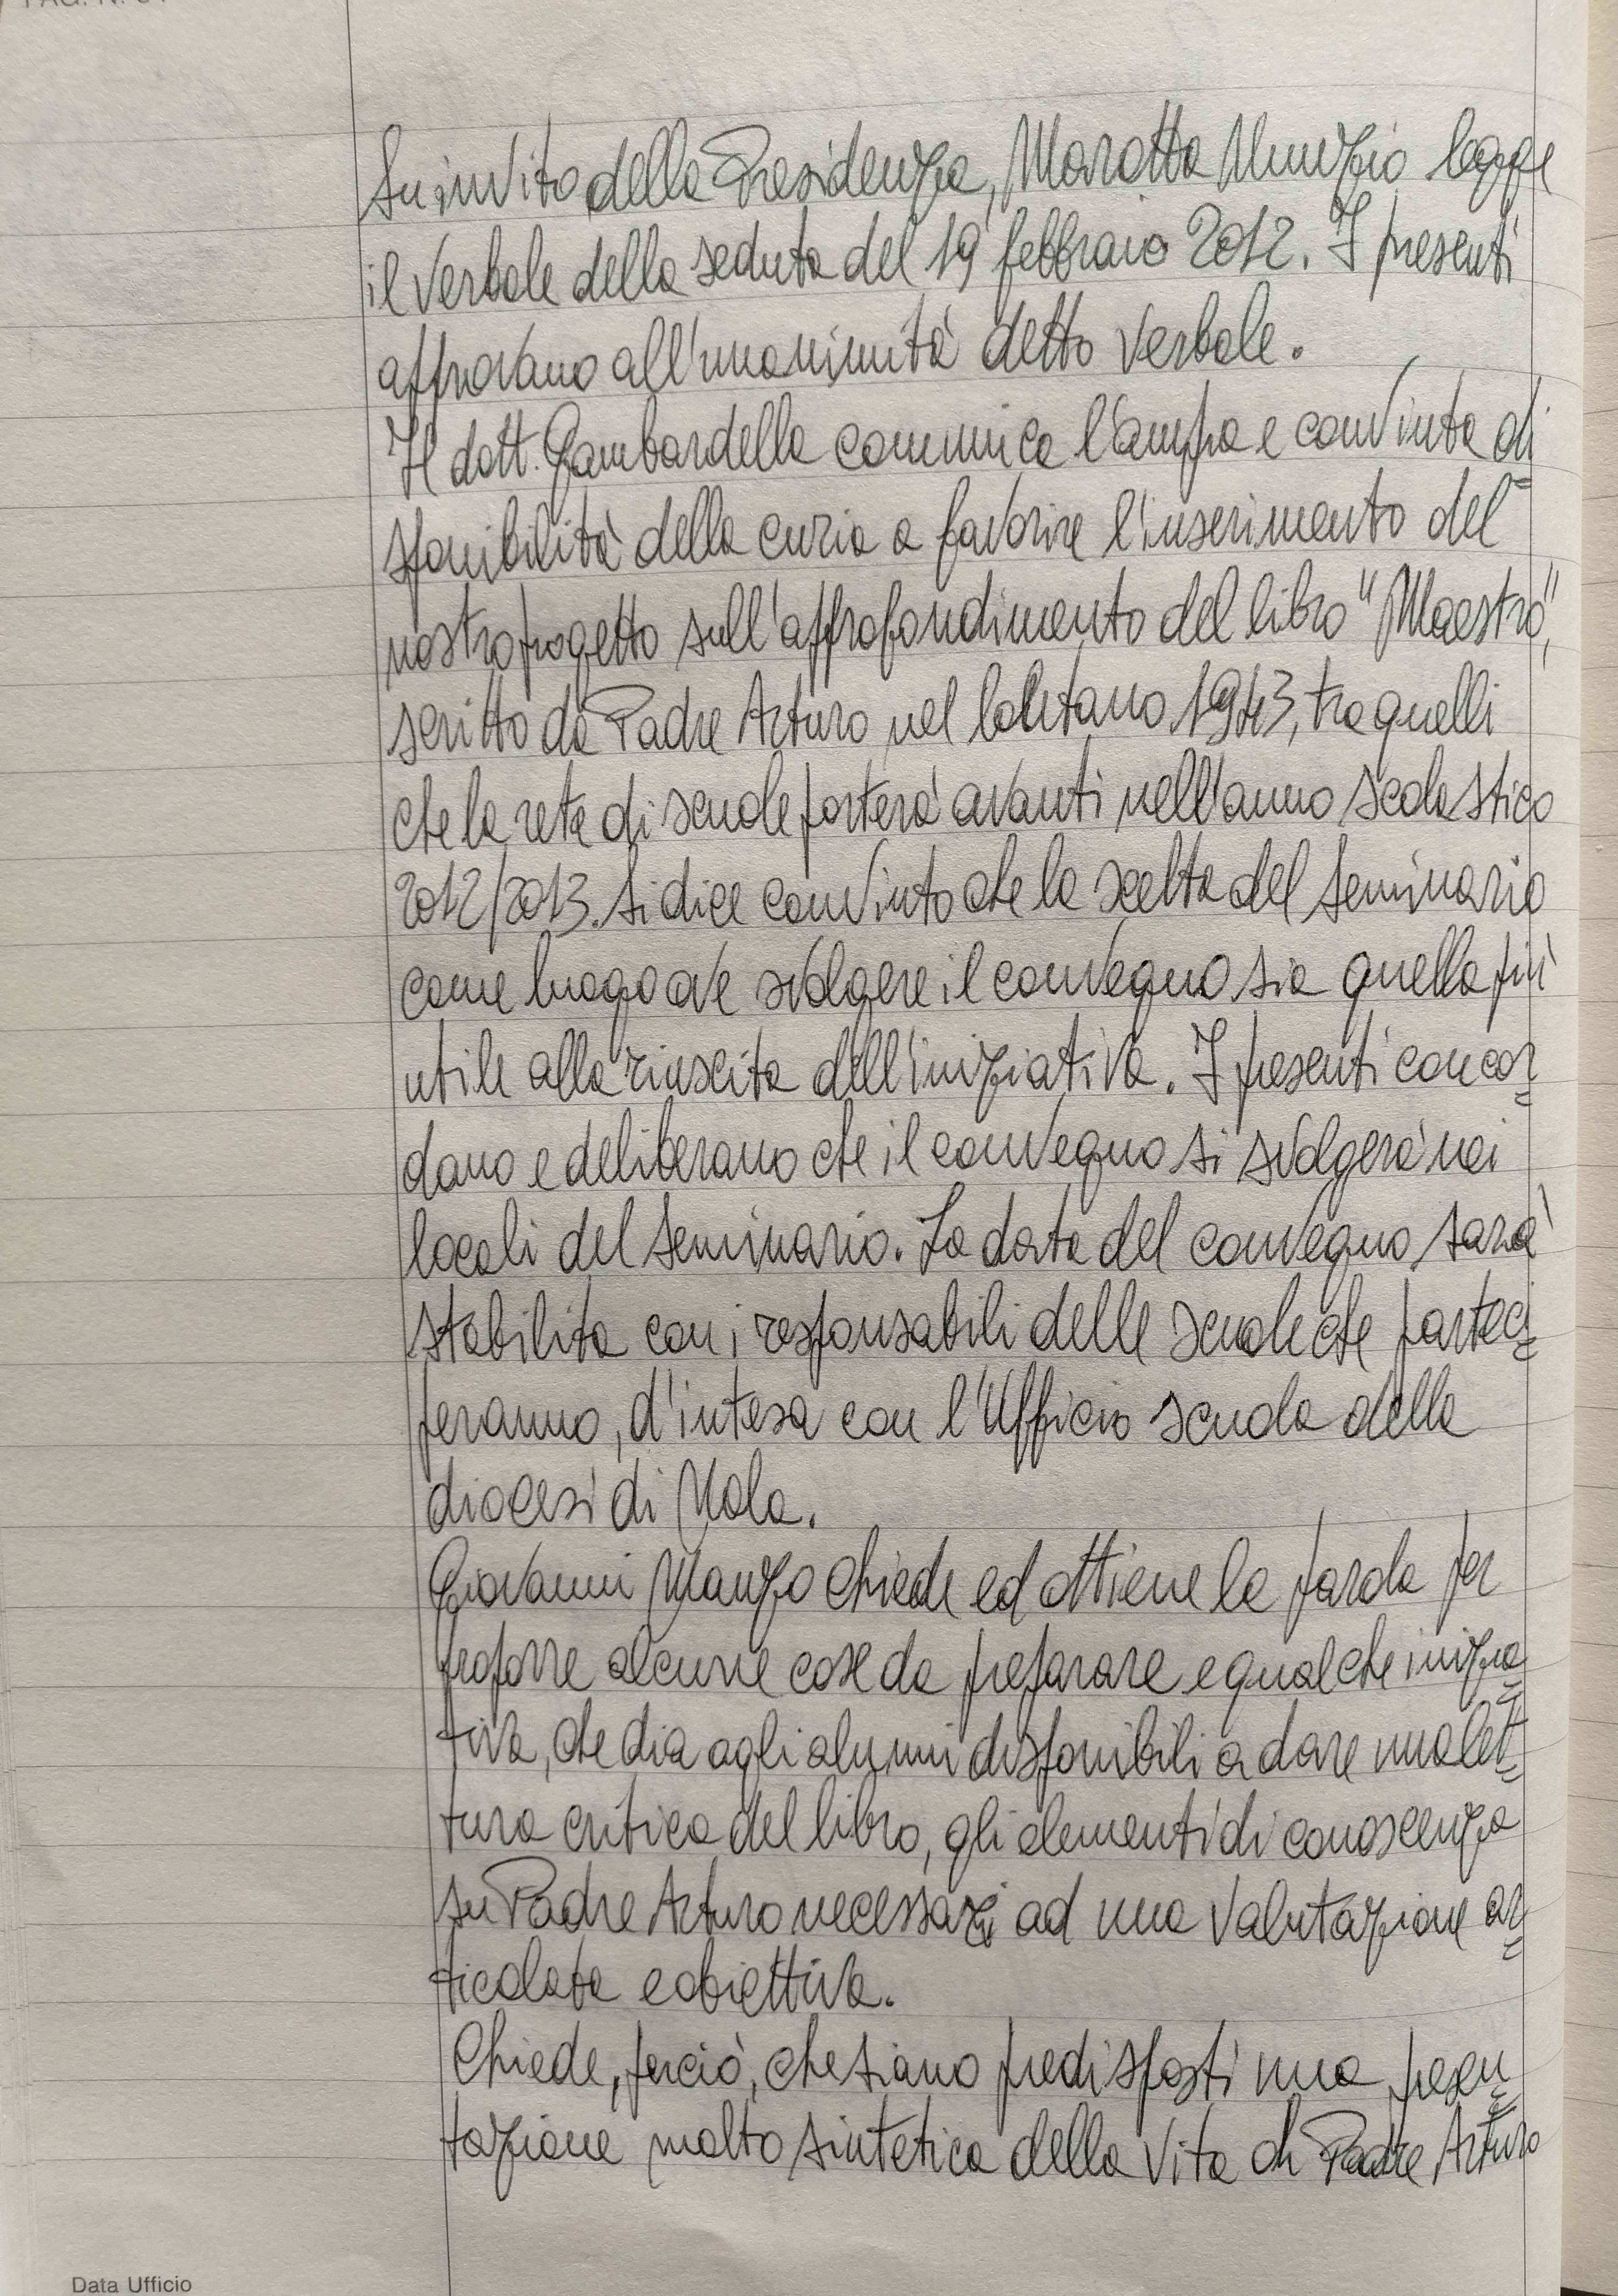 Su invito della Presidenza, Marotta Nunzio legge
il verbale della seduta del 19 febbraio 2012. I presenti
approvano all'unanimità detto verbale.
Il dott. Gambardella comunica l'ampia e convinta di=
sponibilità della curia a favorire l'inserimento del
nostro progetto sull'approfondimento del libro "Maestro",
scritto da Padre Arturo nel lontano 1943, tra quelli
che la rete di scuole porterà avanti nell'anno scolastico
2012/2013. Si dice convinto che la scelta del Seminario
come luogo ove svolgere il convegno sia quella più
utile alla riuscita dell'iniziativa. I presenti concor=
dano e deliberano che il convegno si svolgerà nei
locali del Seminario. La data del convegno sarà
stabilita con i responsabili delle scuole che parteci=
peranno, d'intesa con l'Ufficio scuola della
diocesi di Nola.
Giovanni Manzo chiede ed ottiene la parola per
proporre alcune cose da preparare e qualche inizia=
tiva, che dia agli alunni disponibili a dare una let=
tura critica del libro, gli elementi di conoscenza
su Padre Arturo necessari ad una valutazione ar=
ticolata e obiettiva.
Chiede, perciò, che siano predisposti una presen=
tazione molto sintetica della vita di Padre Arturo
Data Ufficio